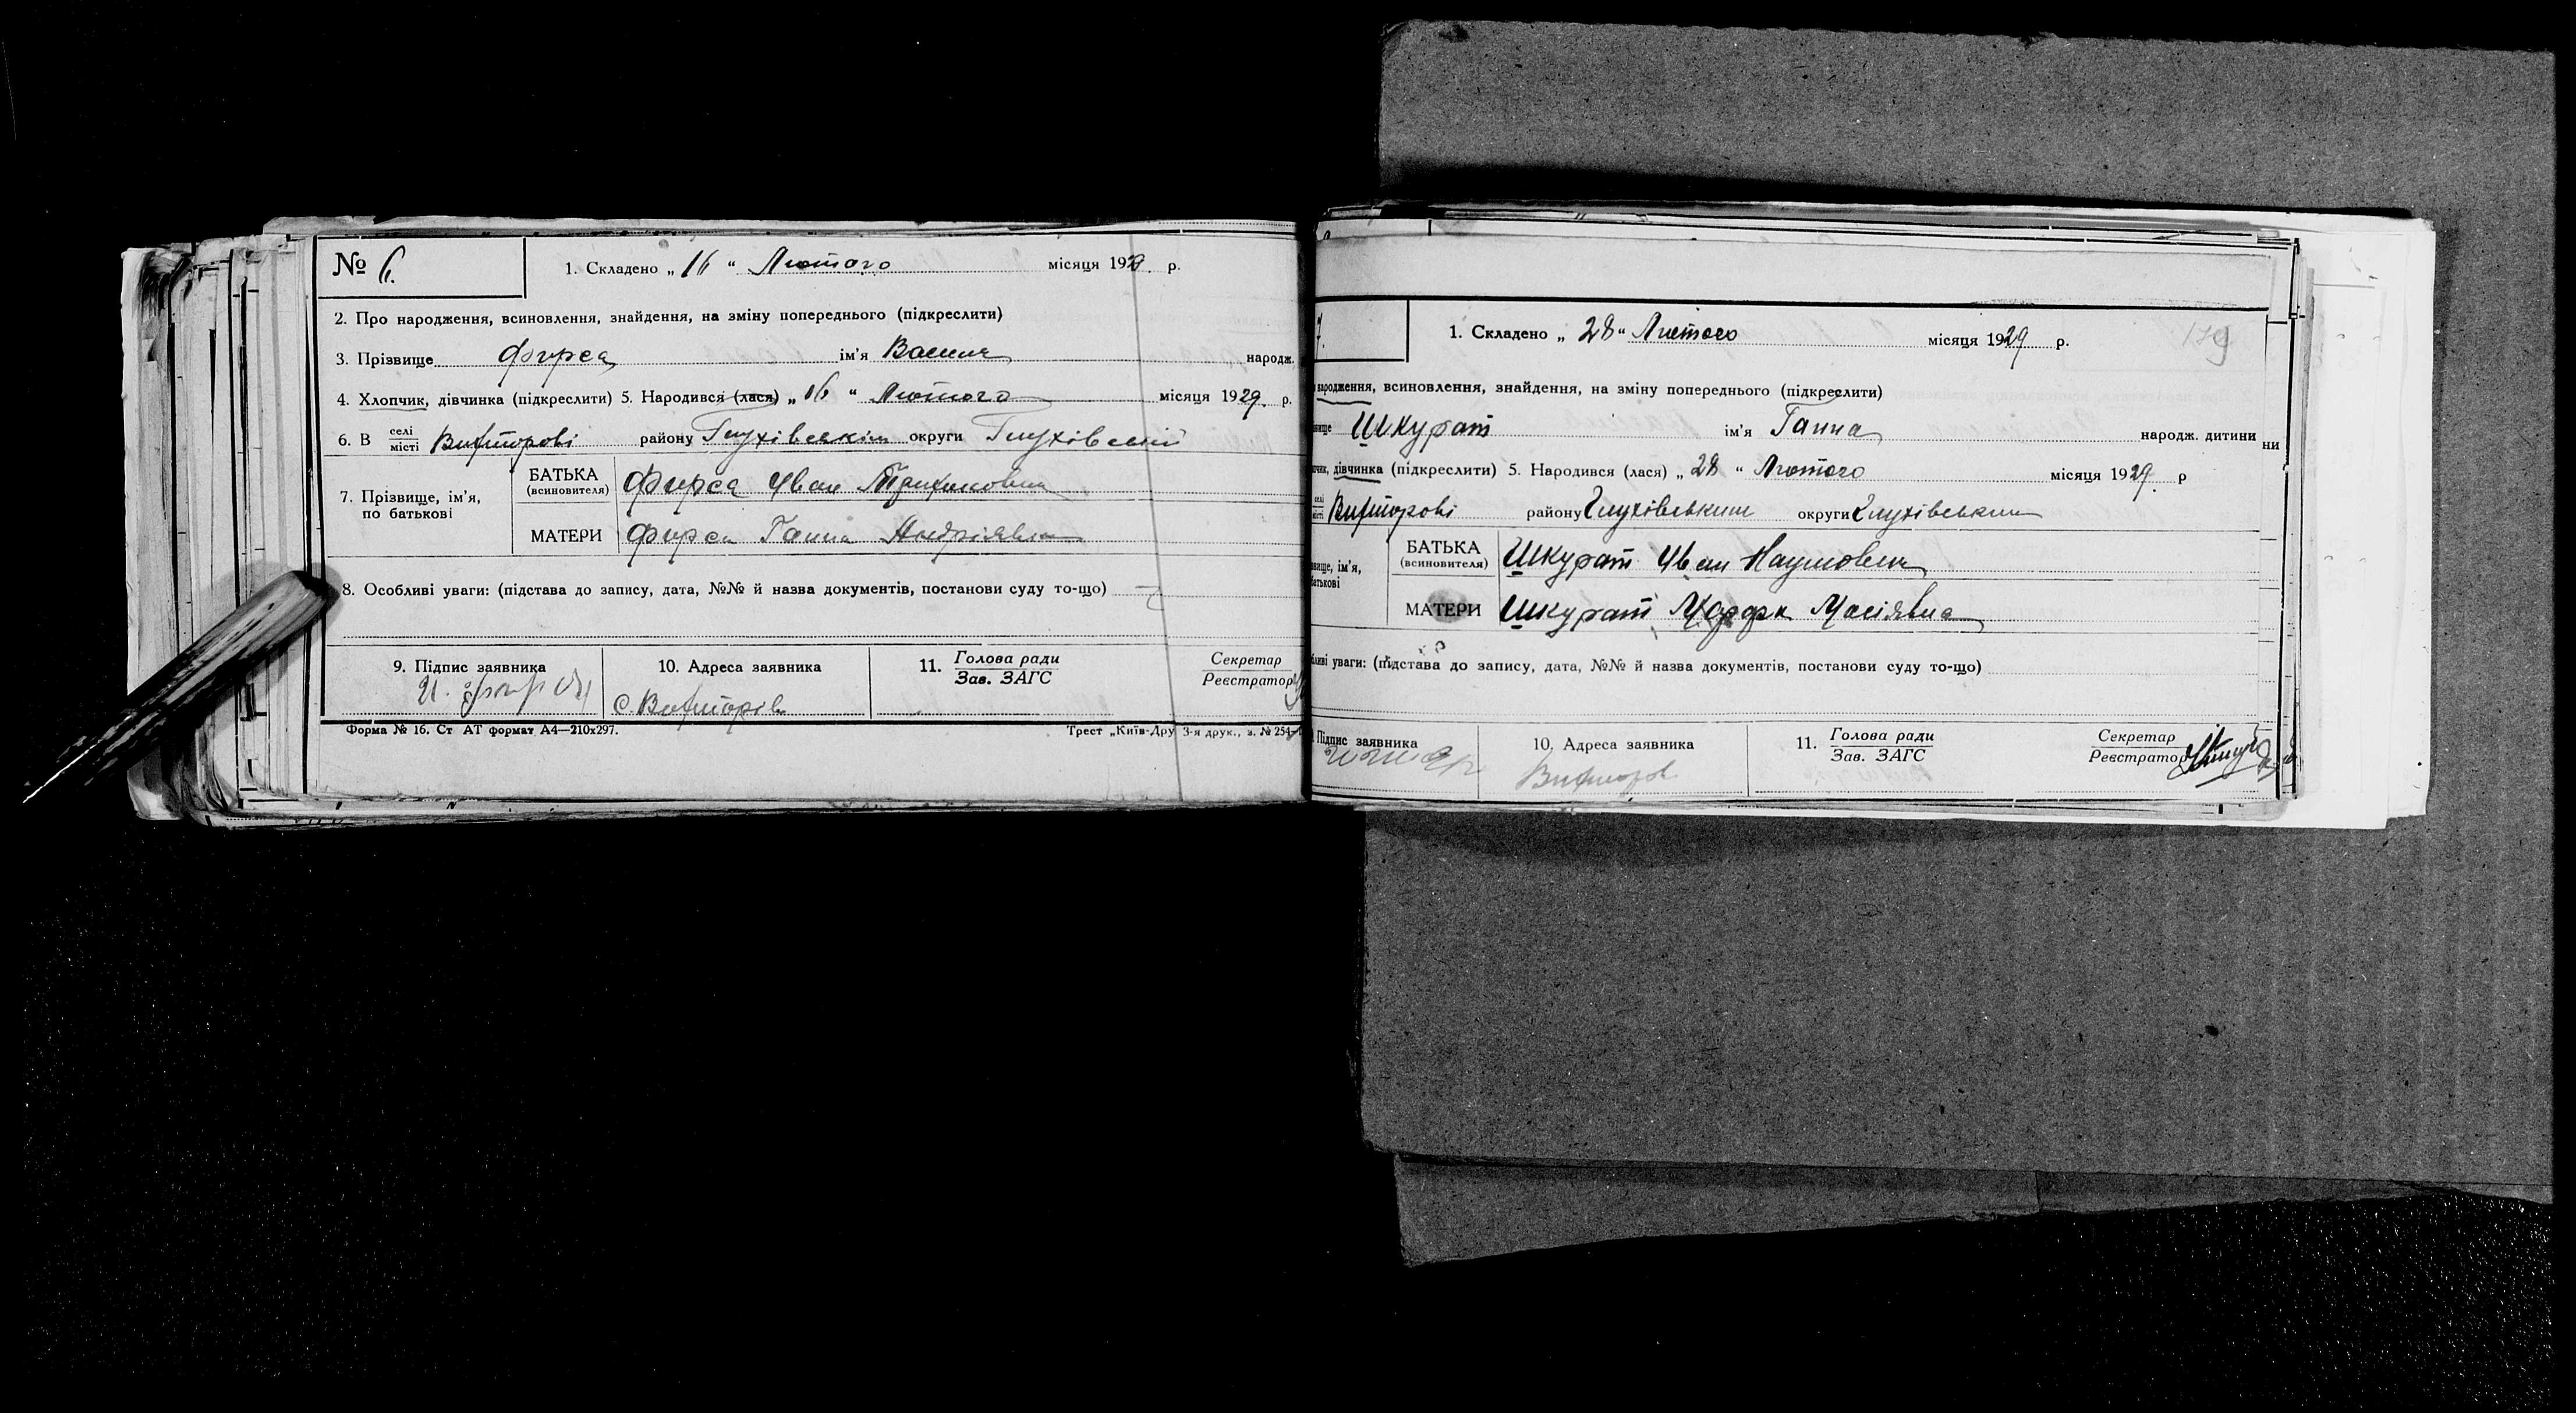 № 6.
1. Складено „ 16 “ Лютого місяця 1929. р.
2. Про народження, всиновлення, знайдення, на зміну попереднього (підкреслити)
3. Прізвище Фирса ім’я Василь народж.
4. Хлопчик, дівчинка (підкреслити) 5. Народився (лася) „ 16 “ Лютого місяця 1929. р.
6. В селі
місті Вихторові району Глухівським округи Глухівській
7. Прізвище, ім’я,
по батькові
БАТЬКА
(всиновителя) Фирса Иван
МАТЕРИ Фирса Ганна Андріявна
8. Особливі уваги: (підстава до запису, дата, №№ й назва документів, постанови суду то-що)
9. Підпис заявника
10. Адреса заявника
с. Вихторів
11. Голова ради
Зав. ЗАГС
Секретар
Реєстратор
Форма № 16. Ст АТ формат А4—210х297.
Трест „Київ-Дру 3-я друк., з. № 254
7.
1. Складено „ 28 “ Лютого місяця 1929 р.
179
народження, всиновлення, знайдення, на зміну попереднього (підкреслити)
вище Шкурат ім’я Ганна народж. дитини
ни
чик, дівчинка (підкреслити) 5. Народився (лася) „ 28 “ Лютого місяця 1929. р
селі
місті Вихторові району Глухівським округи Глухівським
вище, ім’я,
батькові
БАТЬКА
(всиновителя) Шкурат Иван Наумович
МАТЕРИ Шкурат Марфа
ливі уваги: (підстава до запису, дата, №№ й назва документів, постанови суду то-що)
Підпис заявника
10. Адреса заявника
Вихторов
11. Голова ради
Зав. ЗАГС
Секретар
Реєстратор